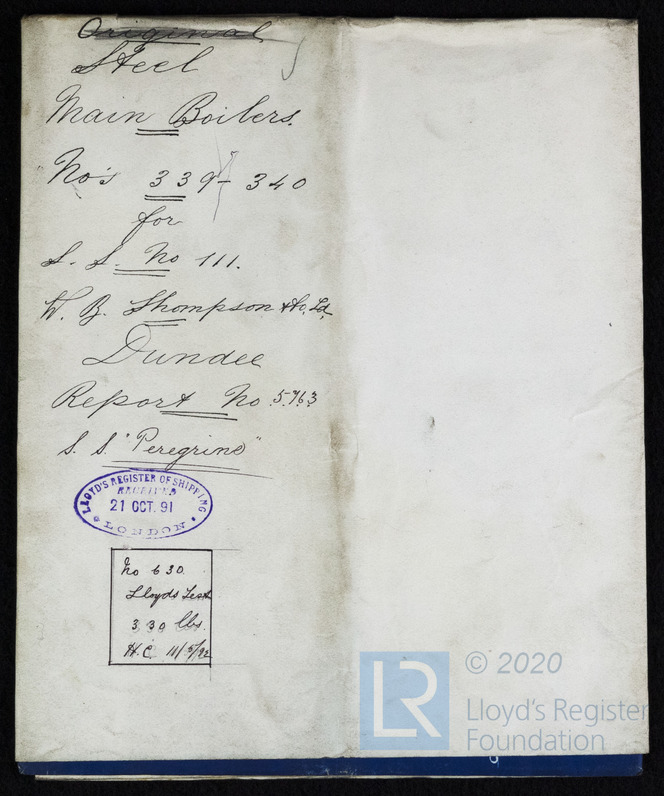 Original
Steel
Main Boilers.
No's 339 - 340
for
S. S. No 111.
W. B. Thompson & Co. Ld.
Dundee
Report No 5763
S. S. "Peregrine"
LLOYD'S REGISTER OF SHIPPING
RECEIVED
21 OCT. 91
LONDON
No 630
Lloyds Test
330 lbs.
H.C. 11/5/92
LR
© 2020
Lloyd's Register
Foundation